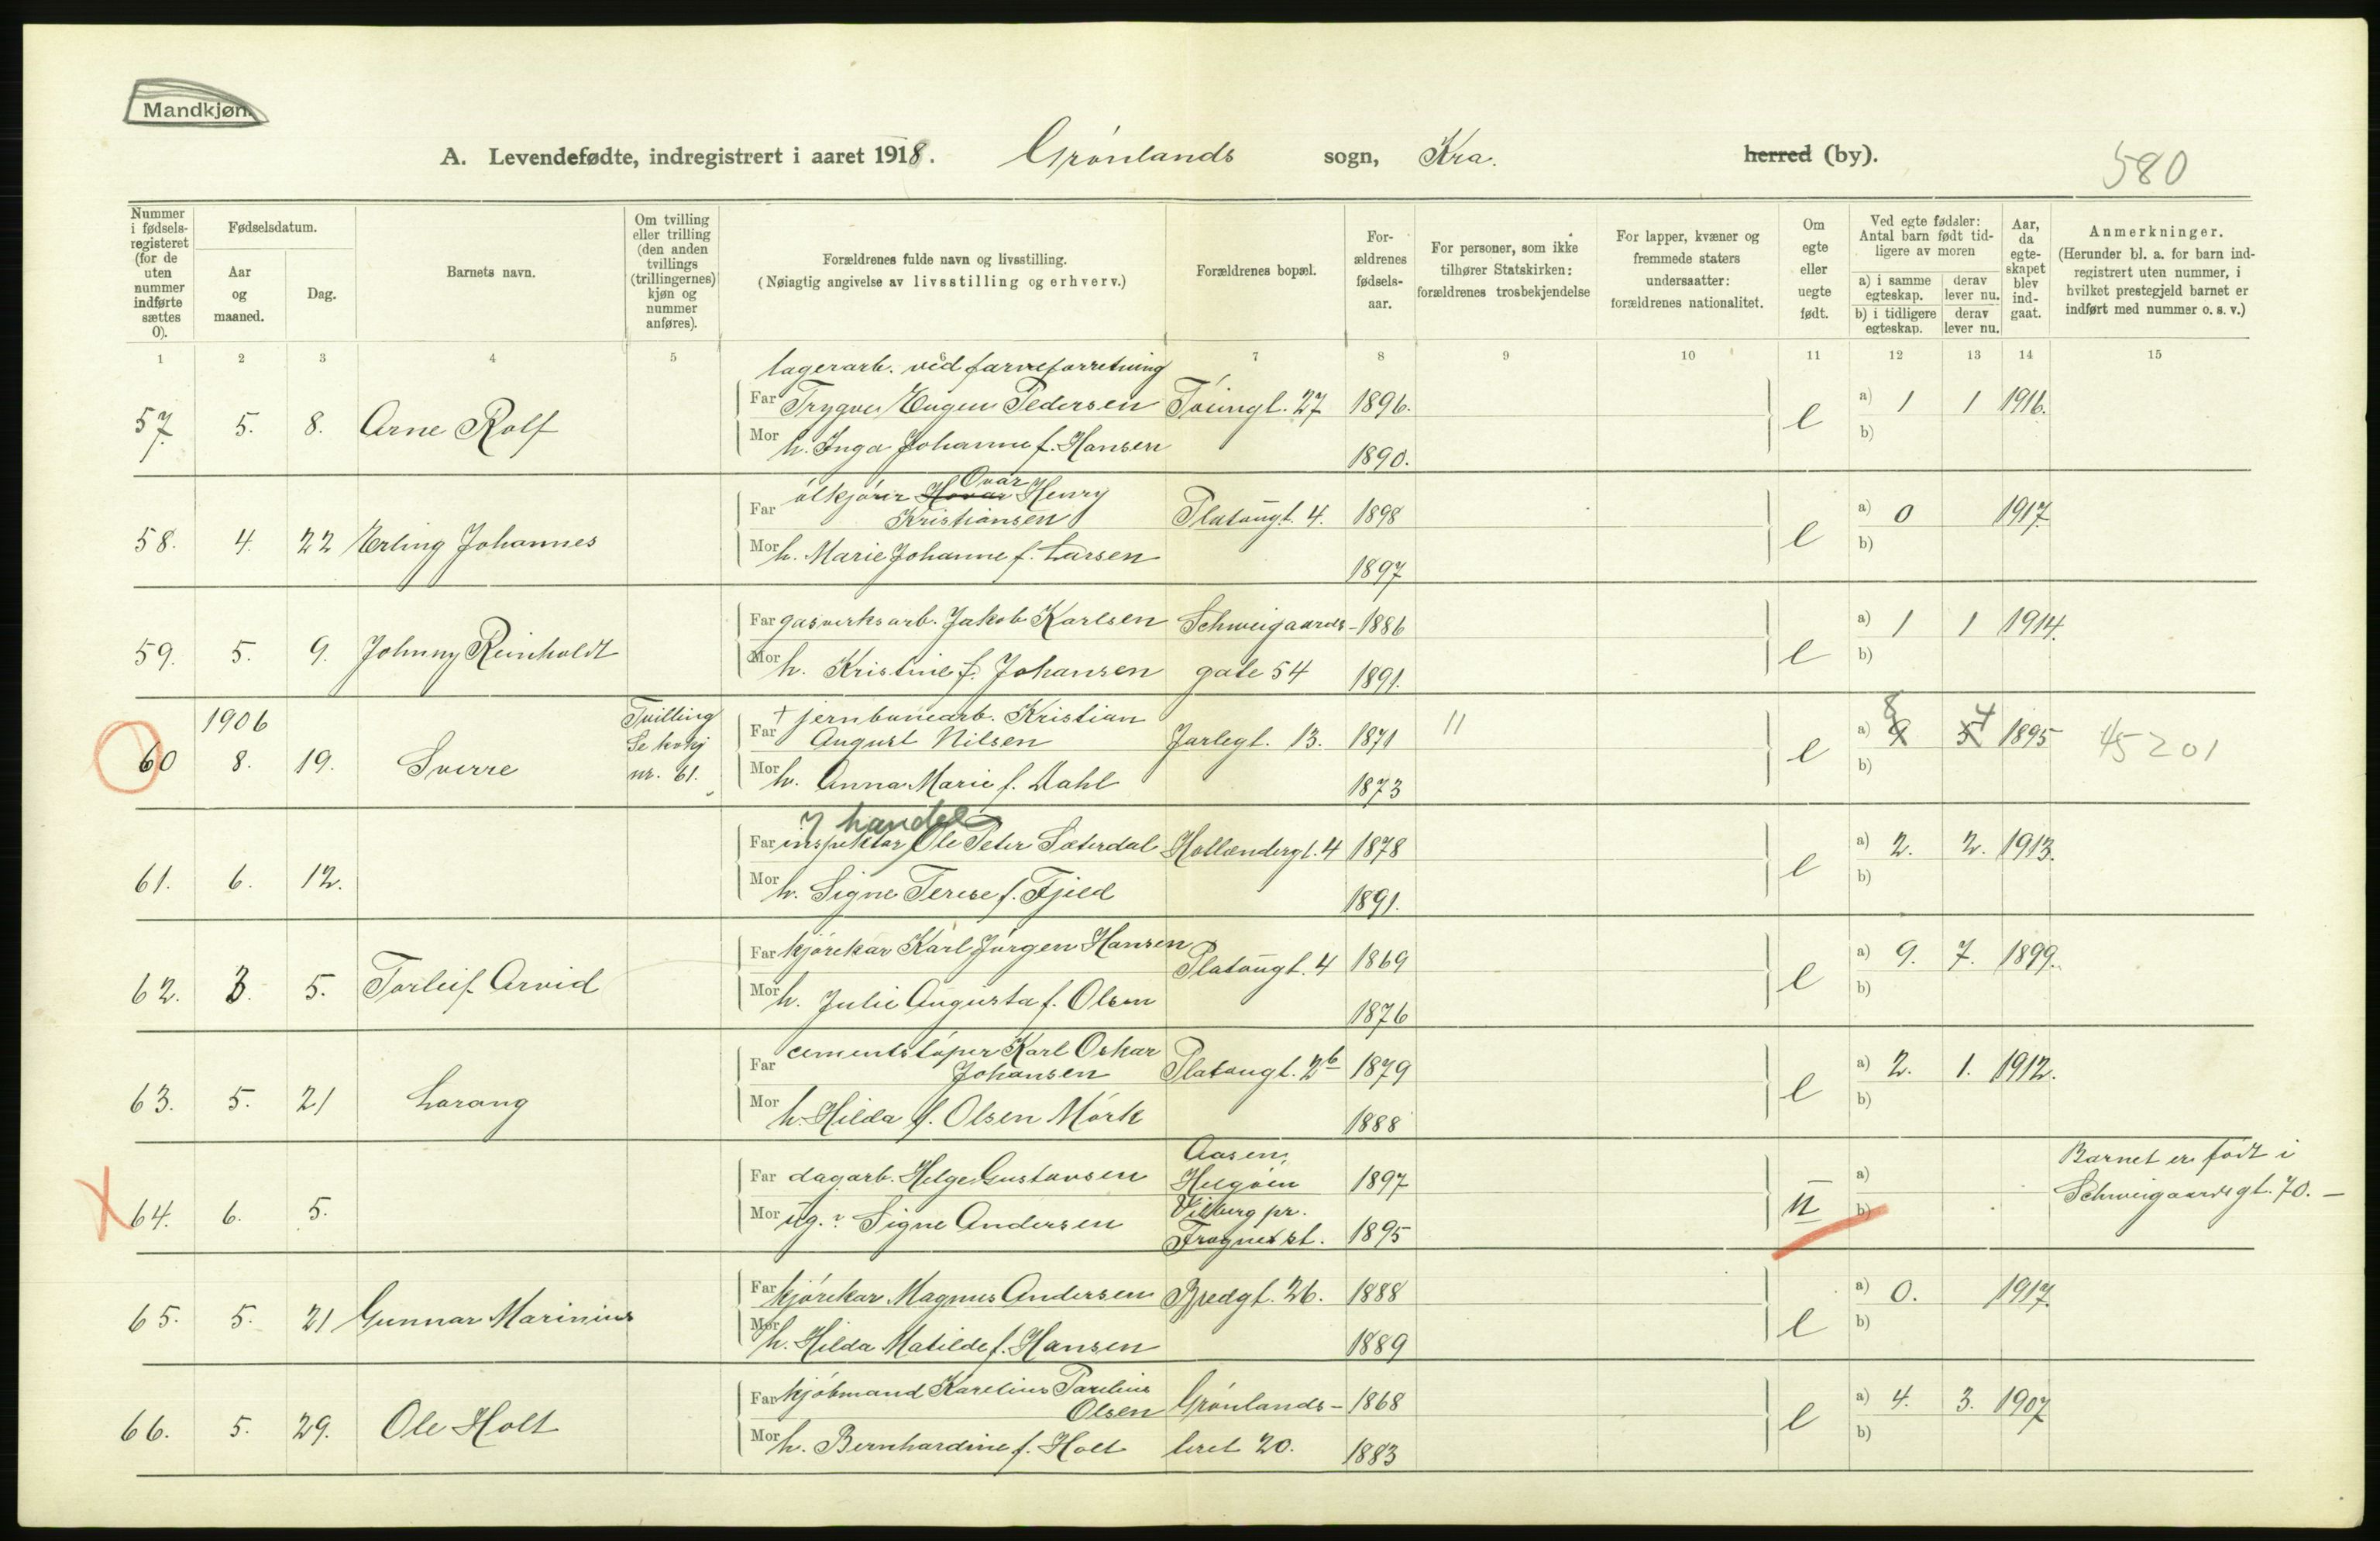 Mandkjøn.
A. Levendefødte, indregistrert i aaret 1918. Grønlands sogn, Kra. herred (by).
580
Nummer i fødsels-registeret (for de uten nummer indførte sættes 0).
Fødselsdatum.
Aar og maaned.
Dag.
Barnets navn.
Om tvilling eller trilling (den anden tvillings (trillingernes) kjøn og nummer anføres).
Forældrenes fulde navn og livsstilling.
(Nøiagtig angivelse av livsstilling og erhverv.)
Forældrenes bopæl.
For-ældrenes fødsels-aar.
For personer, som ikke tilhører Statskirken: forældrenes trosbekjendelse
For lapper, kvæner og fremmede staters undersaatter: forældrenes nationalitet.
Om egte eller uegte født.
Ved egte fødsler: Antal barn født tid-ligere av moren
a) i samme egteskap.
derav lever nu.
b) i tidligere egteskap.
derav lever nu.
Aar, da egte-skapet blev ind-gaat.
Anmerkninger.
(Herunder bl. a. for barn ind-registrert uten nummer, i hvilket prestegjeld barnet er indført med nummer o. s. v.)
1 2 3 4 5 6 7 8 9 10 11 12 13 14 15
lagerarb. ved farveforretning
Far Trygve Eugen Pedersen Tøiengt. 27 1896. a) 1 1 1916.
57. 5. 8. Arne Rolf e b)
Mor h. Inga Johanne f. Hansen 1890.
ølkjører Hovar Ovar Henry
Far Kristiansen Platougt. 4. 1898 a) 0 1917
58. 4. 22 Erling Johannes e b)
Mor h. Marie Johanne f. Larsen 1897
Far gasverksarb. Jakob Karlsen Schweigaards- 1886 a) 1 1 1914.
59. 5. 9. Johnny Reinholdt e b)
Mor h. Kristine f. Johansen gate 54 1891.
1906 Tvilling + jernbanearb. Kristian
Far August Nilsen Jarlegt. 13. 1871 11 a) 9 8 5 4 1895 45201
60 8. 19. Sverre Se kvkj nr. 61. e b)
Mor h. Anna Marie f. Dahl 1873
i handel
Far inspektør Ole Peter Sæterdal Hollændergt. 4 1878 a) 2. 2. 1913.
61. 6. 12. e b)
Mor h. Signe Terese f. Fjeld 1891.
Far kjørekar Karl Jørgen Hansen Platougt. 4 1869 a) 9. 7. 1899.
62. 3. 5. Torleif Arvid e b)
Mor h. Julie Augusta f. Olsen 1876
cementstøper Karl Oskar
Far Johansen Platougt. 2b 1879 a) 2. 1. 1912.
63. 5. 21 Larang e b)
Mor h. Hilda f. Olsen Mørk 1888
Aasen, Barnet er født i
Far dagarb. Helge Gustavsen Helgøen 1897 a) Schweigaardsgt. 70. –
X 64. 6. 5. u b)
Mor ug. Signe Andersen Vilberg pr. Frogner st. 1895
Far kjørekar Magnus Andersen Bredgt. 26. 1888 a) 0. 1917.
65. 5. 21 Gunnar Marinius e b)
Mor h. Hilda Matilde f. Hansen 1889
Far kjøbmand Karelius Parelius
Olsen Grønlands- 1868 a) 4. 3. 1907
66. 5. 29. Ole Holt e b)
Mor h. Bernhardine f. Holt leret 20. 1883